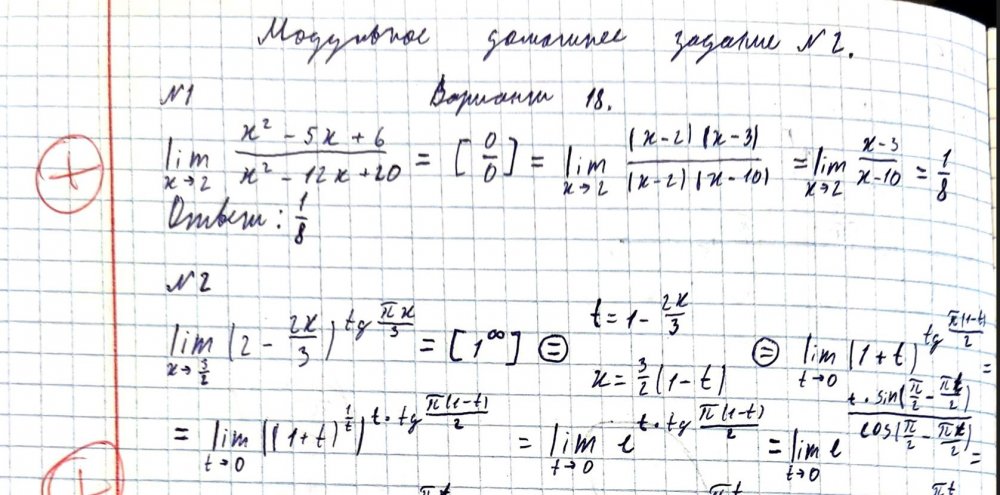 Модульное домашнее задание №2.
№1 Вариант 18.
lim x→2 (x² - 5x + 6)/(x² - 12x + 20) = [0/0] = lim x→2 ((x-2)(x-3))/((x-2)(x-10)) = lim x→2 (x-3)/(x-10) = 1/8
Ответ: 1/8
№2
lim x→3/2 (2 - 2x/3)^(tg πx/3) = [1^∞] ⊜ t = 1 - 2x/3 x = 3/2(1-t) ⊜ lim t→0 (1+t)^(tg π(1-t)/2) =
= lim t→0 ((1+t)^(1/t))^(t·tg π(1-t)/2) = lim t→0 e^(t·tg π(1-t)/2) = lim t→0 e^((t·sin(π/2 - πt/2))/(cos(π/2 - πt/2))) =